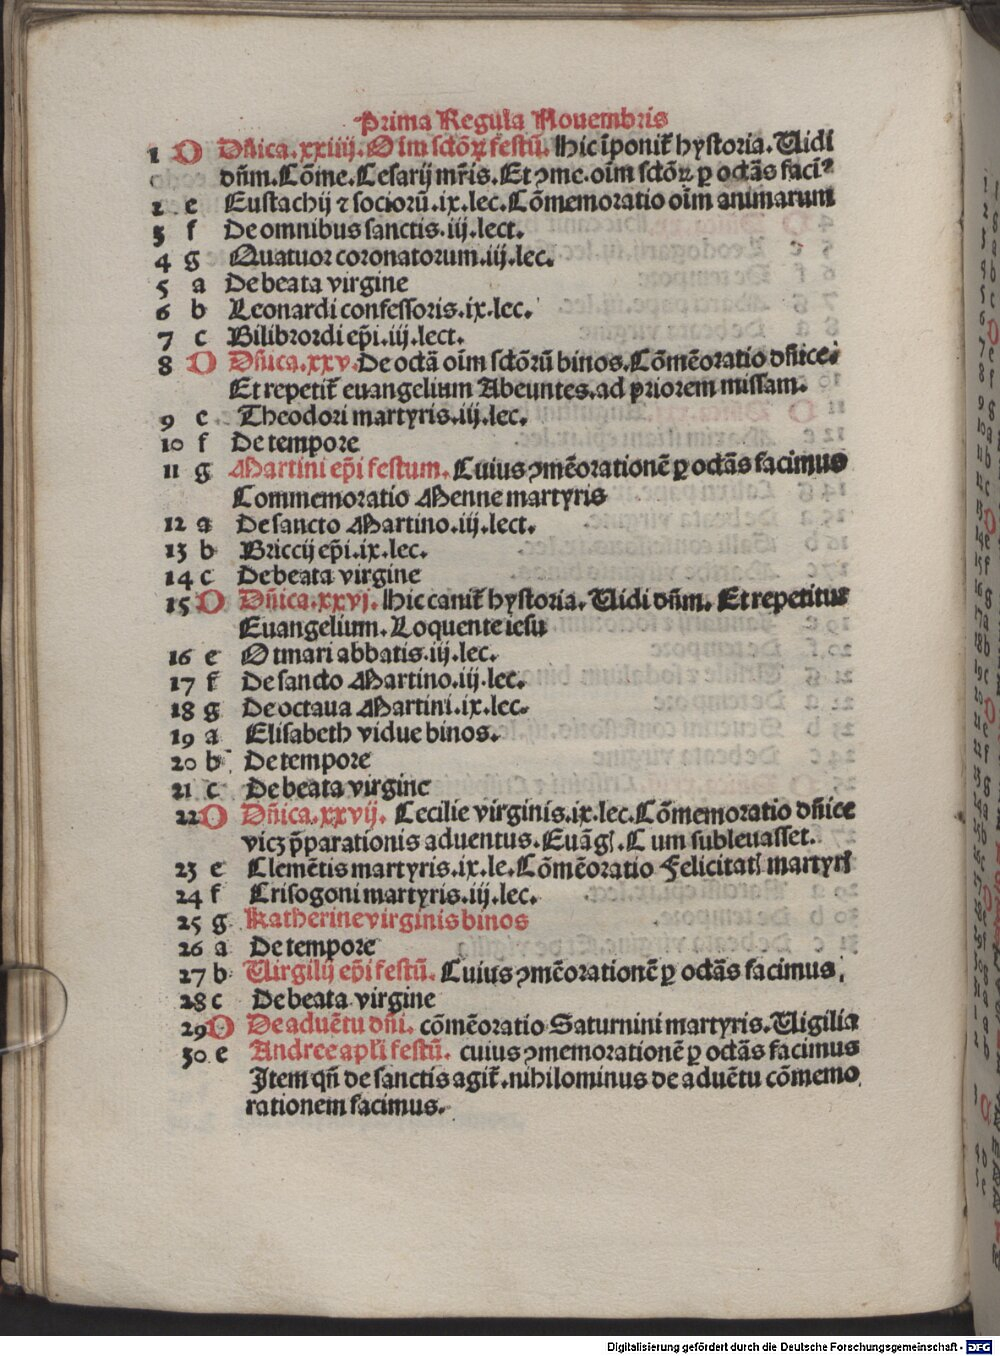 Prima Regula Nouembris
1 D Dñica.xxiiij.Oim sctōꝝ festū. Hic īponit᷑ hystoria. Uidi
dñm.Cōme.Cesarij mr̄is.Et ꝯme.oīm sctōꝝ ꝑ octās facim᷒
2 e Eustachij ⁊ socioꝛū.ix.lec.Cōmemoꝛatio oīm animarum
3 f De omnibus sanctis.iij.lect.
4 g Quatuoꝛ coꝛonatoꝛum.iij.lec.
5 a De beata virgine
6 b Leonardi confessoꝛis.ix.lec.
7 c Bilibꝛoꝛdi ep̄i.iij.lect.
8 D Dñica.xxv.De octā oīm sctōꝛū binos.Cōmēoꝛatio dñice.
Et repetit᷑ euangelium Abeuntes.ad pꝛioꝛem missam.
9 e Theodoꝛi martyris.iij.lec.
10 f De tempoꝛe
11 g Martini ep̄i festum. Cuius ꝯmēoꝛationē ꝑ octās facimus
Commemoꝛatio Menne martyris
12 a De sancto Martino.iij.lect.
13 b Bꝛiccij ep̄i.ix.lec.
14 c De beata virgine
15 D Dñica.xxvj. Hic canit᷑ hystoꝛia. Uidi dñm. Et repetitur
Euangelium. Loquente iesu
16 e Otmari abbatis.iij.lec.
17 f De sancto Martino.iij.lec.
18 g De octaua Martini.ix.lec.
19 a Elisabeth vidue binos.
20 b De tempoꝛe
21 c De beata virgine
22 D Dñica.xxvij. Cecilie virginis.ix.lec.Cōmemoꝛatio dñice
vicꝫ p̄parationis aduentus.Euāgꝉ.Cum subleuasset.
23 e Clemētis martyris.ix.le.Cōmēoꝛatio Felicitatꝭ martyrꝭ
24 f Crisogoni martyris.iij.lec.
25 g Katherine virginis binos
26 a De tempoꝛe
27 b Uirgilij ep̄i festū. Cuius ꝯmēoꝛationē ꝑ octās facimus.
28 c De beata virgine
29 D De aduētu dñi. cōmēoꝛatio Saturnini martyris.Uigilia
30 e Andree apꝉi festū. cuius ꝯmemoꝛationē ꝑ octās facimus
Item qñ de sanctis agit᷑.nihilominus de aduētu cōmemo
rationem facimus.
Digitalisierung gefördert durch die Deutsche Forschungsgemeinschaft - DFG